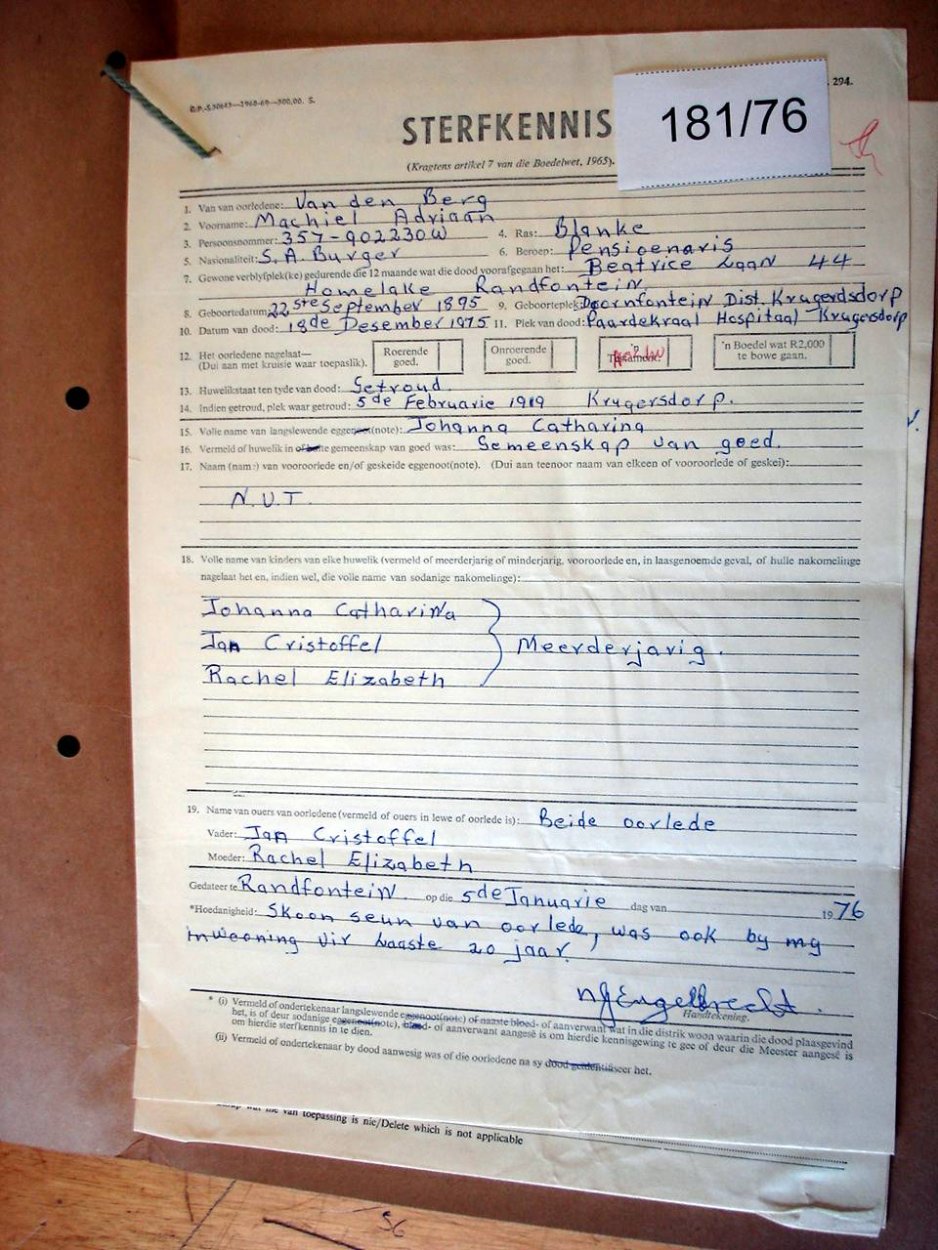 G.P.-S. 1968-69 300,00. S.
294.
181/76
STERFKENNIS
(Kragtens artikel 7 van die Boedelwet, 1965).
1. Van van oorledene: Van den Berg
2. Voorname: Machiel Adriaan
3. Persoonsnommer: 357-902230W 4. Ras: Blanke
5. Nasionaliteit: S.A. Burger 6. Beroep: Pensioenaris
7. Gewone verblyfplek(ke) gedurende die 12 maande wat die dood voorafgegaan het: Beatrice Laan 44
Homelake Randfontein
8. Geboortedatum: 22ste September 1895 9. Geboorteplek: Doornfontein Dist. Krugerdsdorp
10. Datum van dood: 18de Desember 1975 11. Plek van dood: Paardekraal Hospitaal Krugersdorp
12. Het oorledene nagelaat—
(Dui aan met kruisie waar toepaslik).
Roerende
goed.
Onroerende
goed.
'n
Testament.
'n Boedel wat R2,000
te bowe gaan.
13. Huwelikstaat ten tyde van dood: Getroud.
14. Indien getroud, plek waar getroud: 5de Februarie 1919 Krugersdorp.
15. Volle name van langslewende eggenoot(note): Johanna Catharina
16. Vermeld of huwelik in of buite gemeenskap van goed was: Gemeenskap van goed.
17. Naam (name) van vooroorlede en/of geskeide eggenoot(note). (Dui aan teenoor naam van elkeen of vooroorlede of geskei):
N.V.T.
18. Volle name van kinders van elke huwelik (vermeld of meerderjarig of minderjarig, vooroorlede en, in laasgenoemde geval, of hulle nakomelinge
nagelaat het en, indien wel, die volle name van sodanige nakomelinge):
Johanna Catharina
Jan Cristoffel Meerderjarig.
Rachel Elizabeth
19. Name van ouers van oorledene (vermeld of ouers in lewe of oorlede is): Beide oorlede
Vader: Jan Cristoffel
Moeder: Rachel Elizabeth
Gedateer te Randfontein. op die 5de Januarie dag van 1976
*Hoedanigheid: Skoon seun van oorlede, was ook by my
inwooning vir laaste 20 jaar.
NJEngelbrecht.
Handtekening.
* (i) Vermeld of ondertekenaar langslewende eggenoot(note) of naaste bloed- of aanverwant wat in die distrik woon waarin die dood plaasgevind
het, is of deur sodanige eggenoot(note), bloed- of aanverwant aangesê is om hierdie kennisgewing te gee of deur die Meester aangesê is
om hierdie sterfkennis in te dien.
(ii) Vermeld of ondertekenaar by dood aanwesig was of die oorledene na sy dood geïdentifiseer het.
van toepassing is nie/Delete which is not applicable